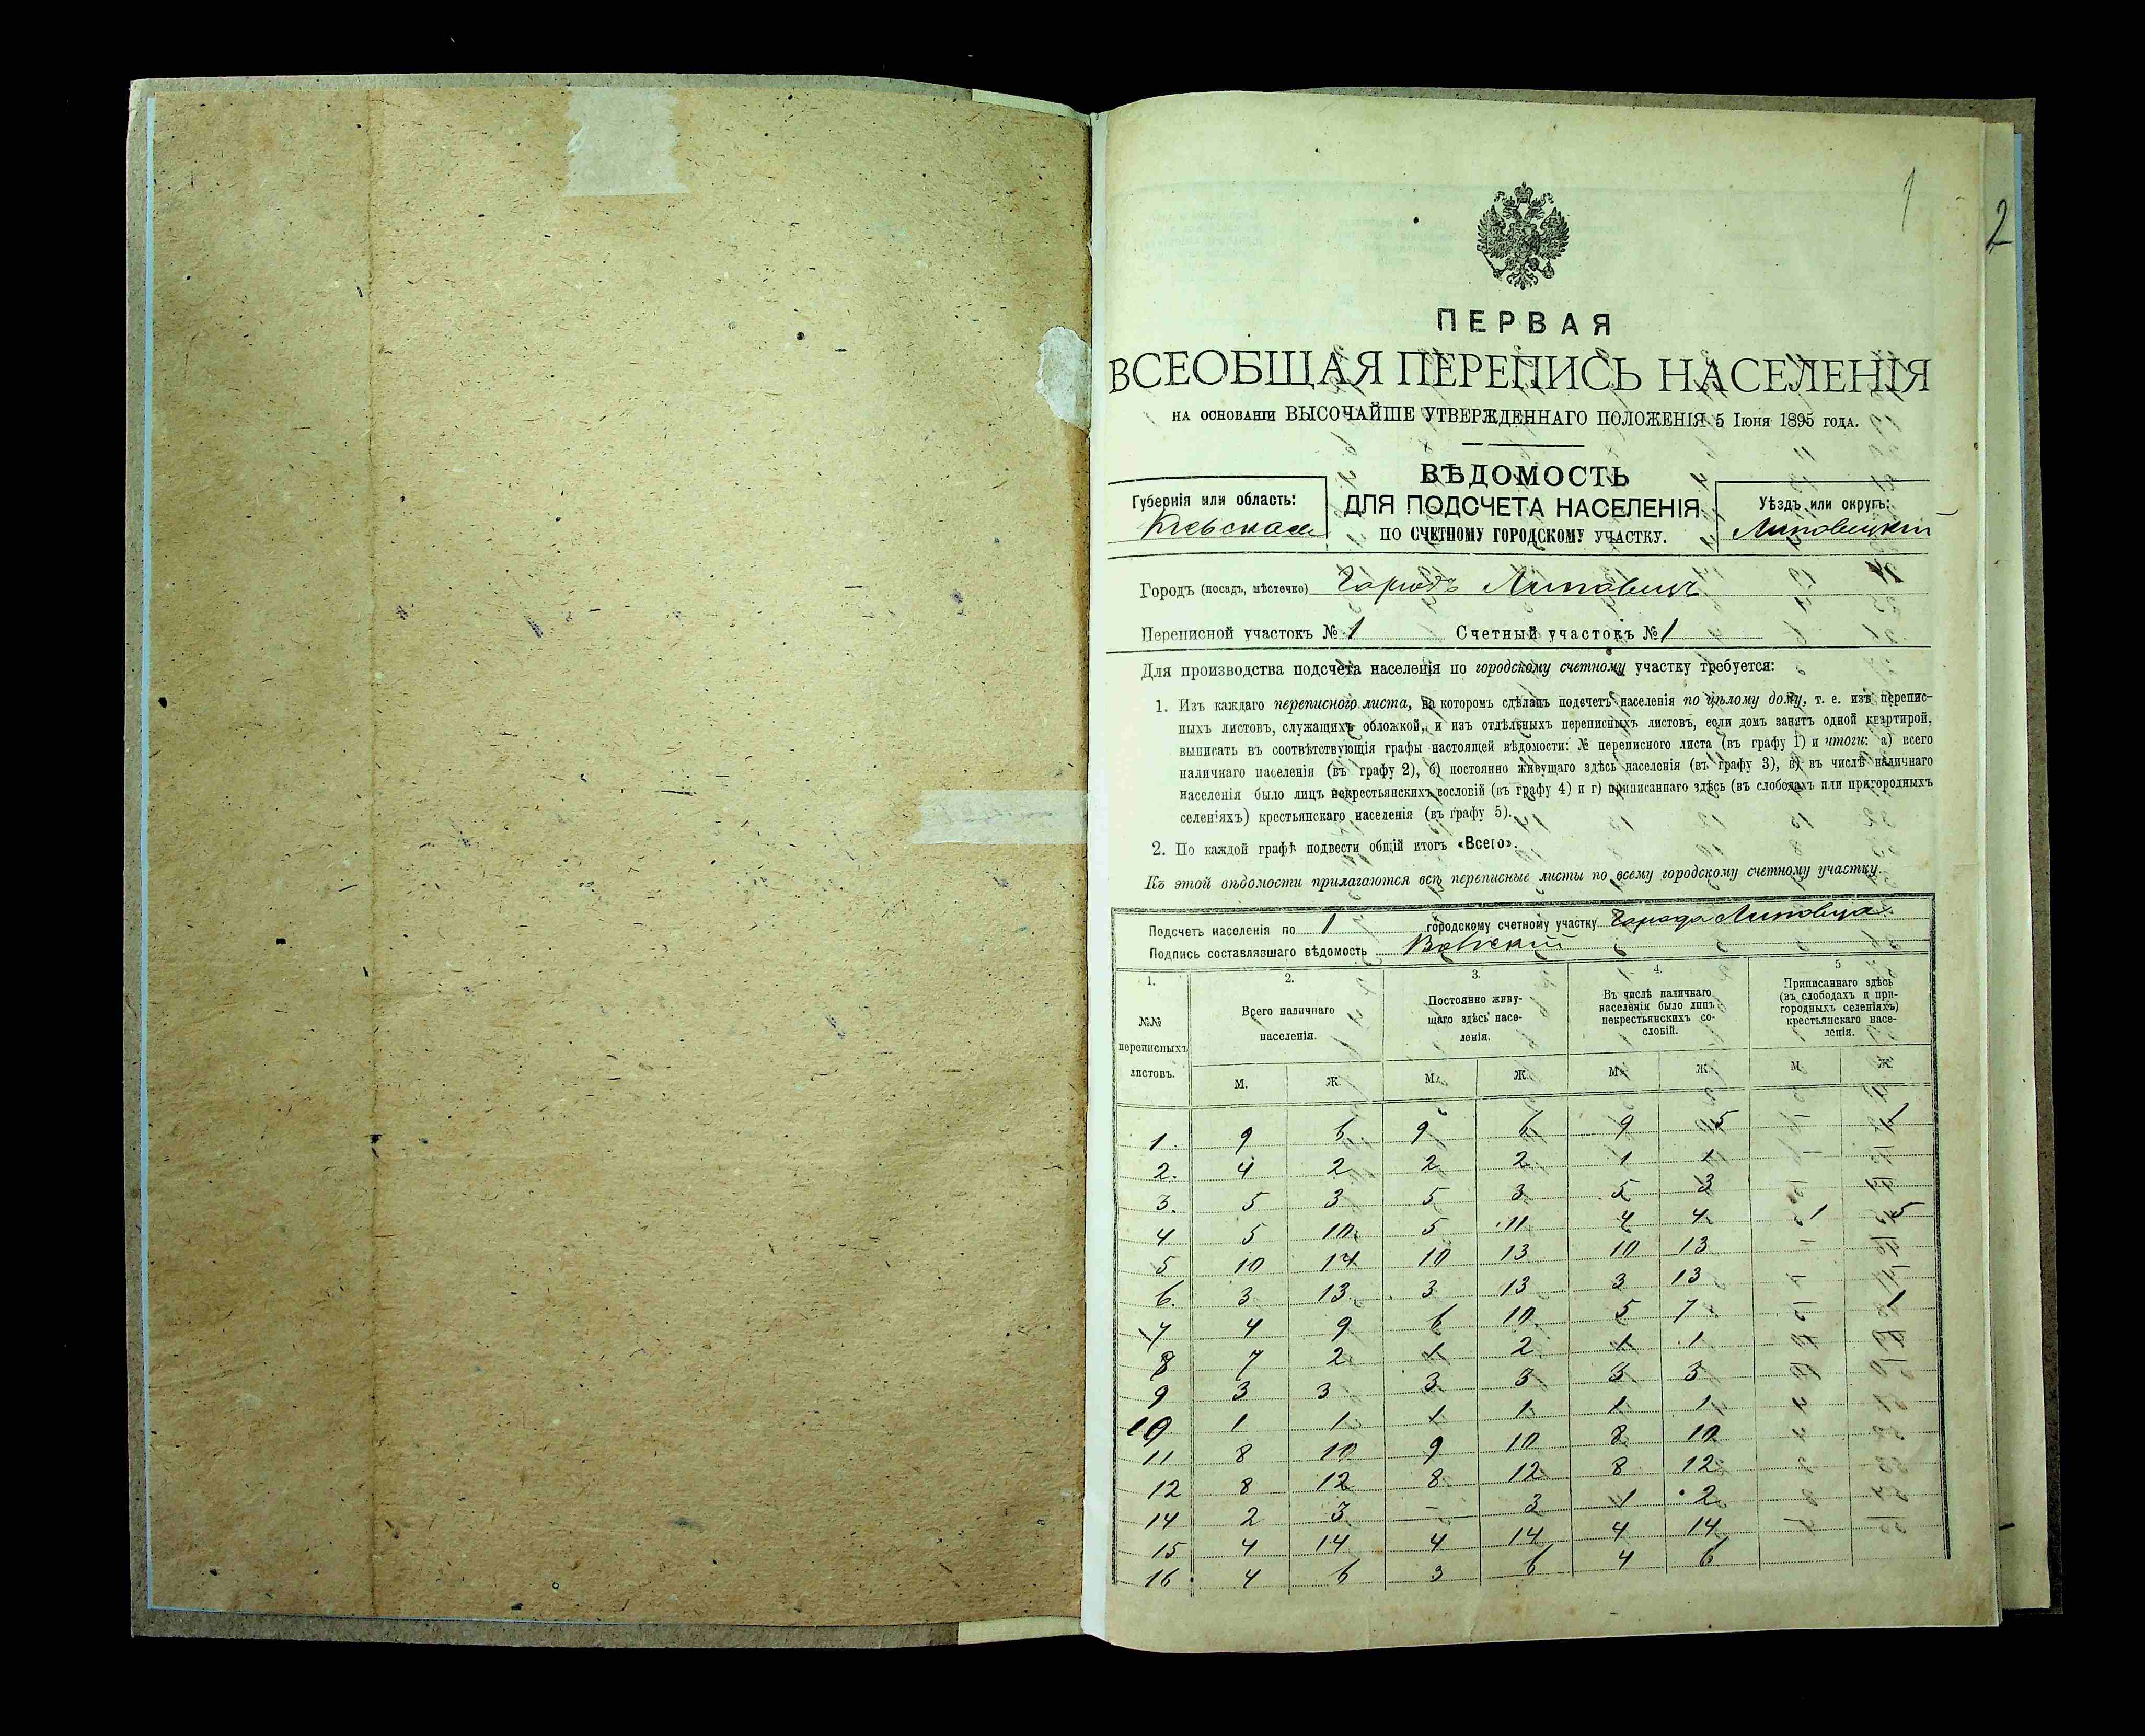 1
2
ПЕРВАЯ
ВСЕОБЩАЯ ПЕРЕПИСЬ НАСЕЛЕНІЯ
НА ОСНОВАНІИ ВЫСОЧАЙШЕ УТВЕРЖДЕННАГО ПОЛОЖЕНІЯ 5 Іюня 1895 ГОДА.
ВѢДОМОСТЬ
ДЛЯ ПОДСЧЕТА НАСЕЛЕНІЯ
ПО СЧЕТНОМУ ГОРОДСКОМУ УЧАСТКУ.
Губернія или область:
Кіевская
Уѣздъ или округъ:
Липовецкій
Городъ (посадъ, мѣстечко) Городъ Липовецъ
Переписной участокъ № 1 Счетный участокъ № 1
Для производства подсчета населенія по городскому счетному участку требуется:
1. Изъ каждаго переписного листа, на которомъ сдѣланъ подсчетъ населенія по цѣлому дому, т. е. изъ перепис-
ныхъ листовъ, служащихъ обложкой, и изъ отдѣльныхъ переписныхъ листовъ, если домъ занятъ одной квартирой,
выписать въ соотвѣтствующія графы настоящей вѣдомости: № переписного листа (въ графу 1) и итоги: а) всего
наличнаго населенія (въ графу 2), б) постоянно живущаго здѣсь населенія (въ графу 3), в) въ числѣ наличнаго
населенія было лицъ некрестьянскихъ сословій (въ графу 4) и г) приписаннаго здѣсь (въ слободахъ или пригородныхъ
селеніяхъ) крестьянскаго населенія (въ графу 5).
2. По каждой графѣ подвести общій итогъ «Всего».
Къ этой вѣдомости прилагаются всѣ переписные листы по всему городскому счетному участку.
Подсчетъ населенія по 1 городскому счетному участку Города Липовца
Подпись составлявшаго вѣдомость
1. 2. 3. 4. 5
№№ переписныхъ листовъ.
Всего наличнаго населенія.
Постоянно живу-щаго здѣсь насе-ленія.
Въ числѣ наличнаго населенія было лицъ некрестьянскихъ со-словій.
Приписаннаго здѣсь (въ слободахъ и при-городныхъ селеніяхъ) крестьянскаго насе-ленія.
М. Ж. М. Ж. М. Ж. М. Ж.
1. 9 6 9 6 9 5 1
2. 4 2 2 2 1 1
3. 5 3 5 3 5 3
4 5 10 5 11 4 4 1 5
5 10 14 10 13 10 13
6. 3 13 3 13 3 13
7 4 9 6 10 5 7 1
8 7 2 1 2 1 1
9 3 3 3 3 3 3
10 1 1 1 1 1 1
11 8 10 9 10 8 10
12 8 12 8 12 8 12
14 2 3 — 3 1 2
15 4 14 4 14 4 14
16 4 6 3 6 4 6